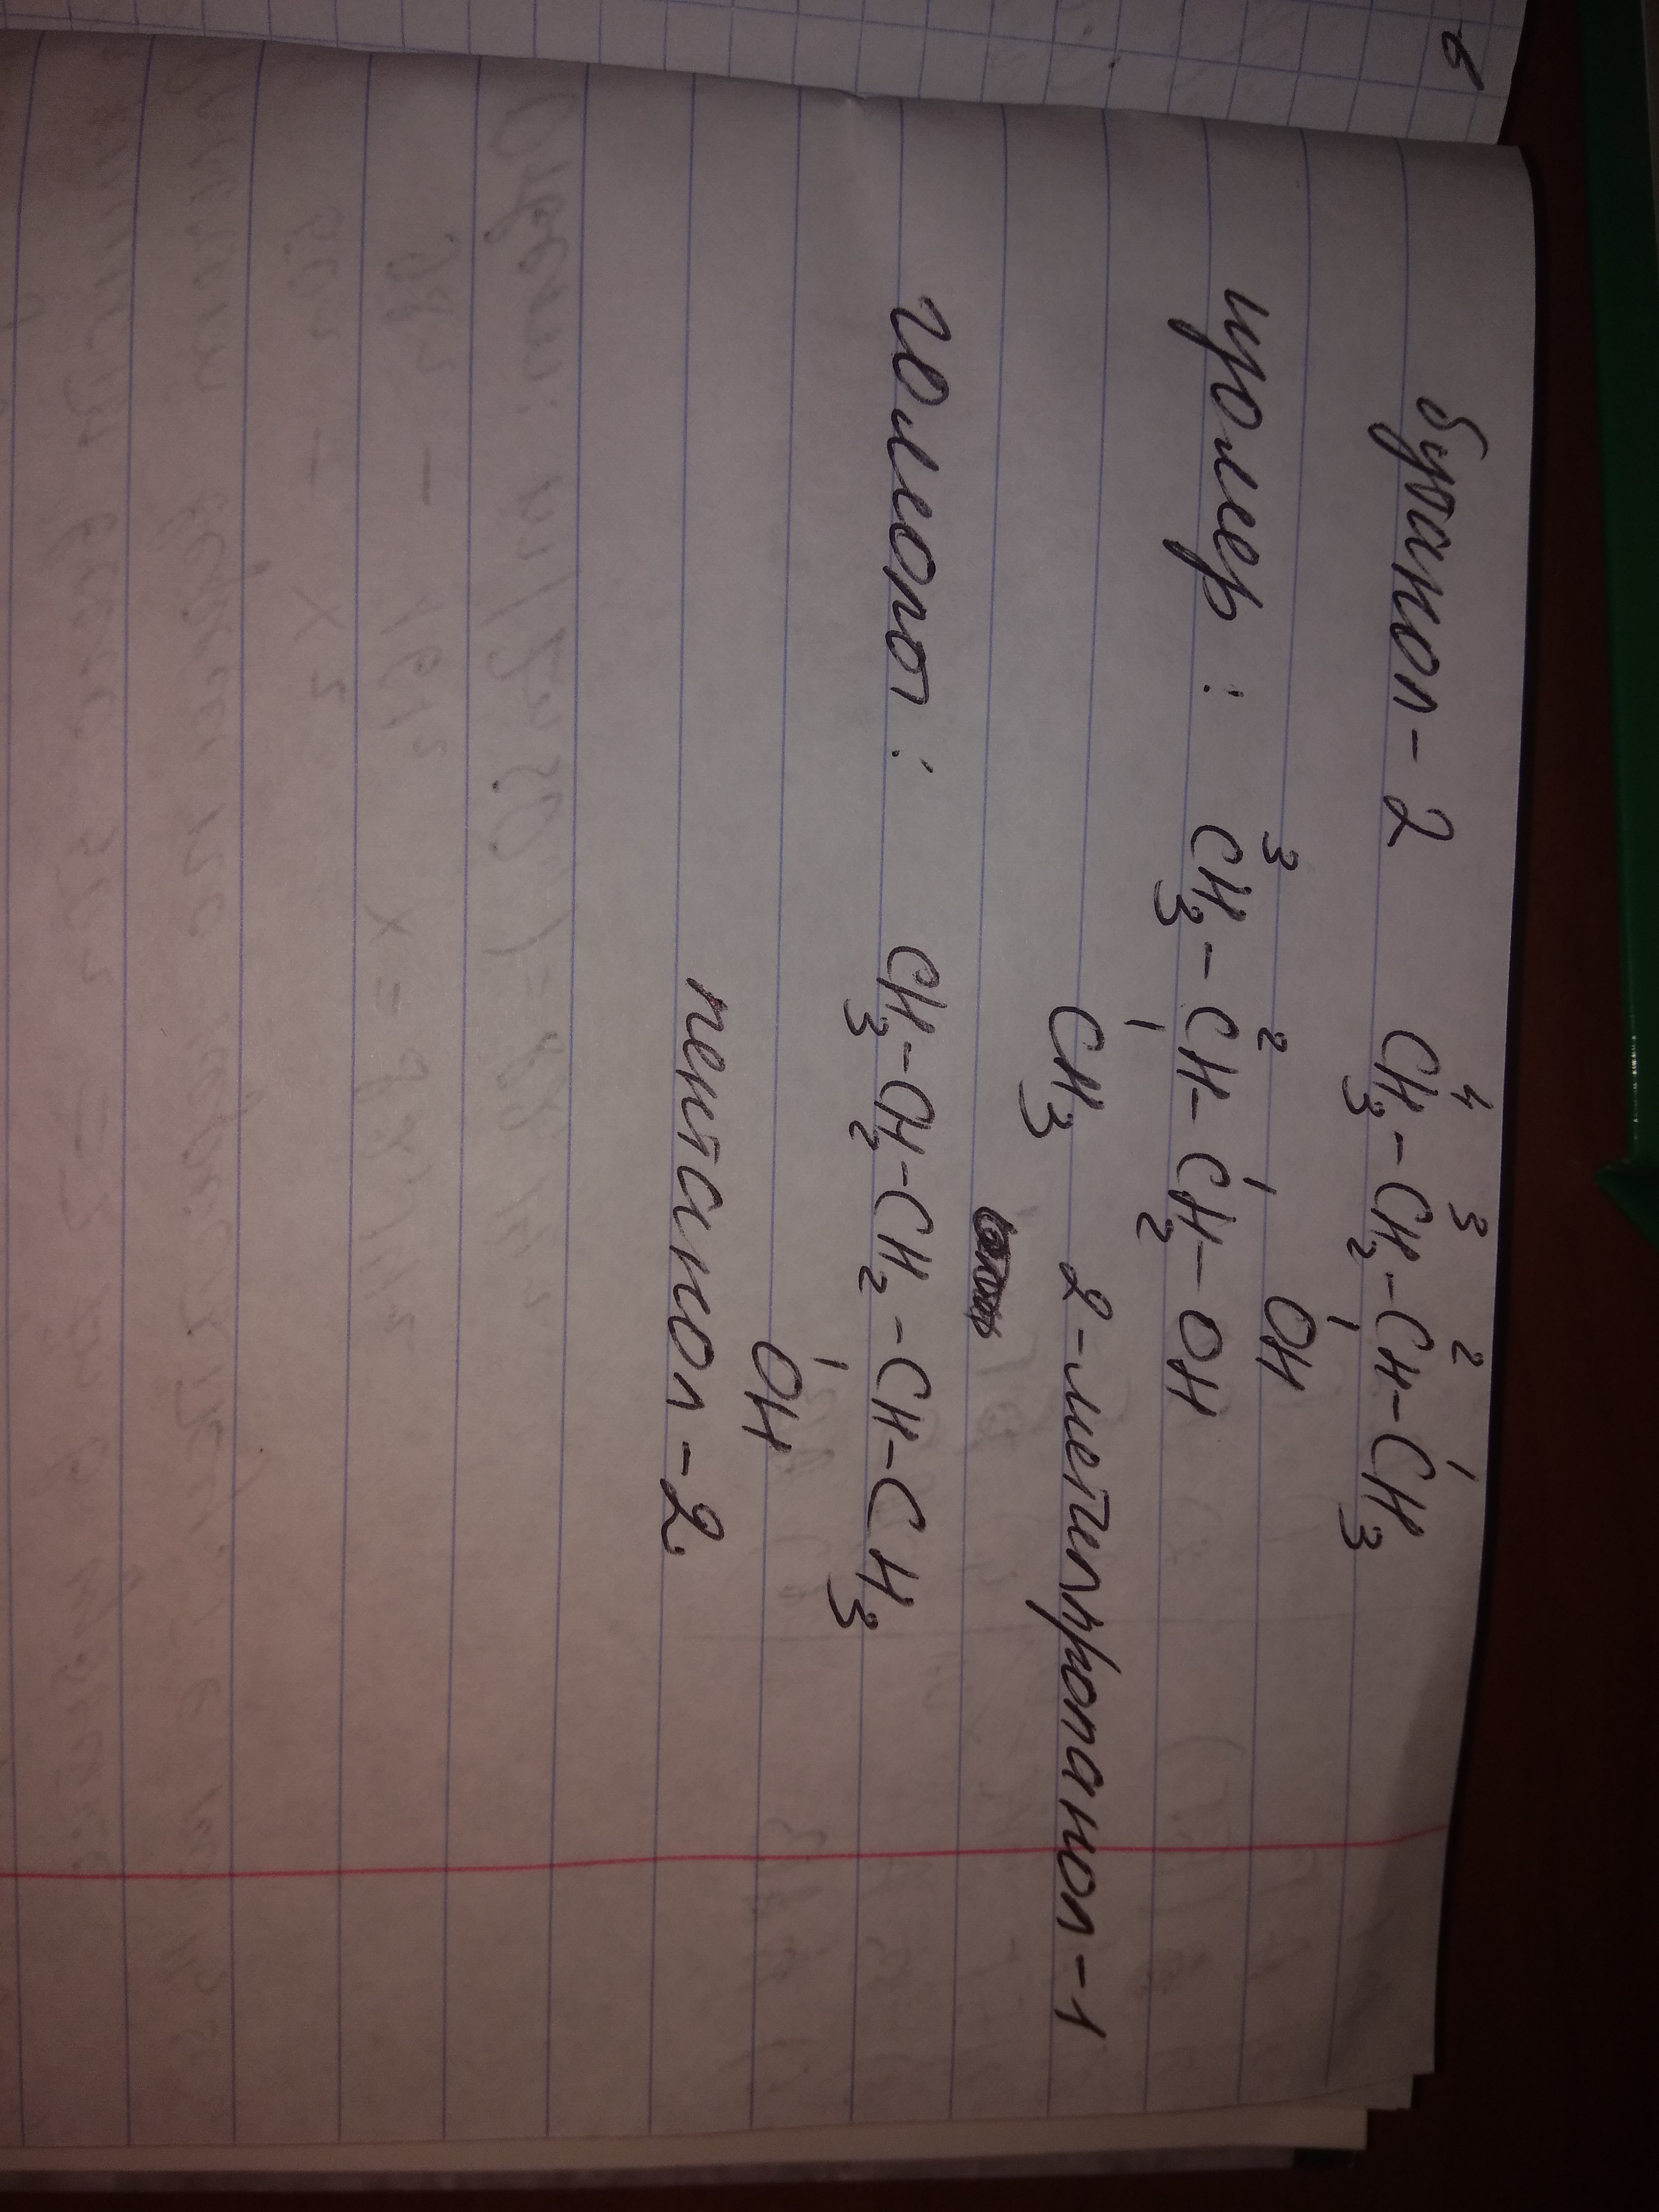 Бутанол-2 CH3-CH2-CH-CH3
4 3 2 1
OH
изомер: CH3-CH-CH2-OH
3 2 1
CH3 2-метилпропанол-1
гомолог: CH3-CH2-CH2-CH-CH3
OH
пентанол-2.